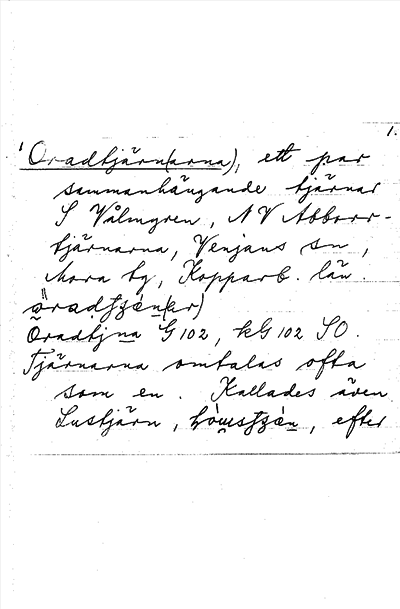 1.
Oradtjärn(arna), ett par
sammanhängande tjärnar
S Vålmgren, NV Abborr-
tjärnarna, Venjans sn,
Mora tg, Kopparb. län.
Oradtjna G102, kG102 SO.
Tjärnarna omtalas ofta
som en. Kallades även
Lustjärn, efter